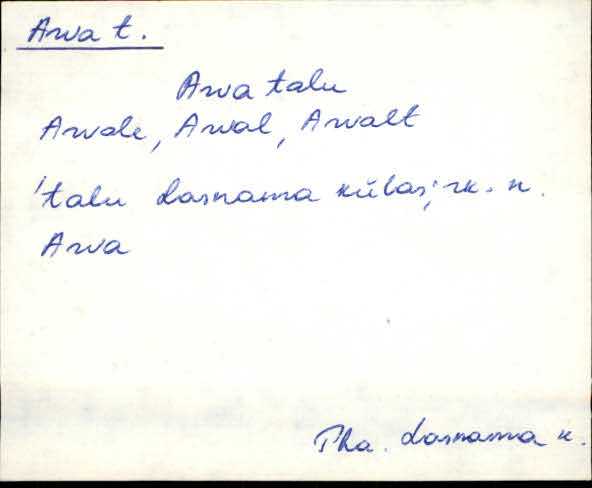 Arva t.
Arva talu
Arvale, Arval, Arvalt
'talu Lasnama külas; rk. n.
Arva
Pha. Lasnama k.